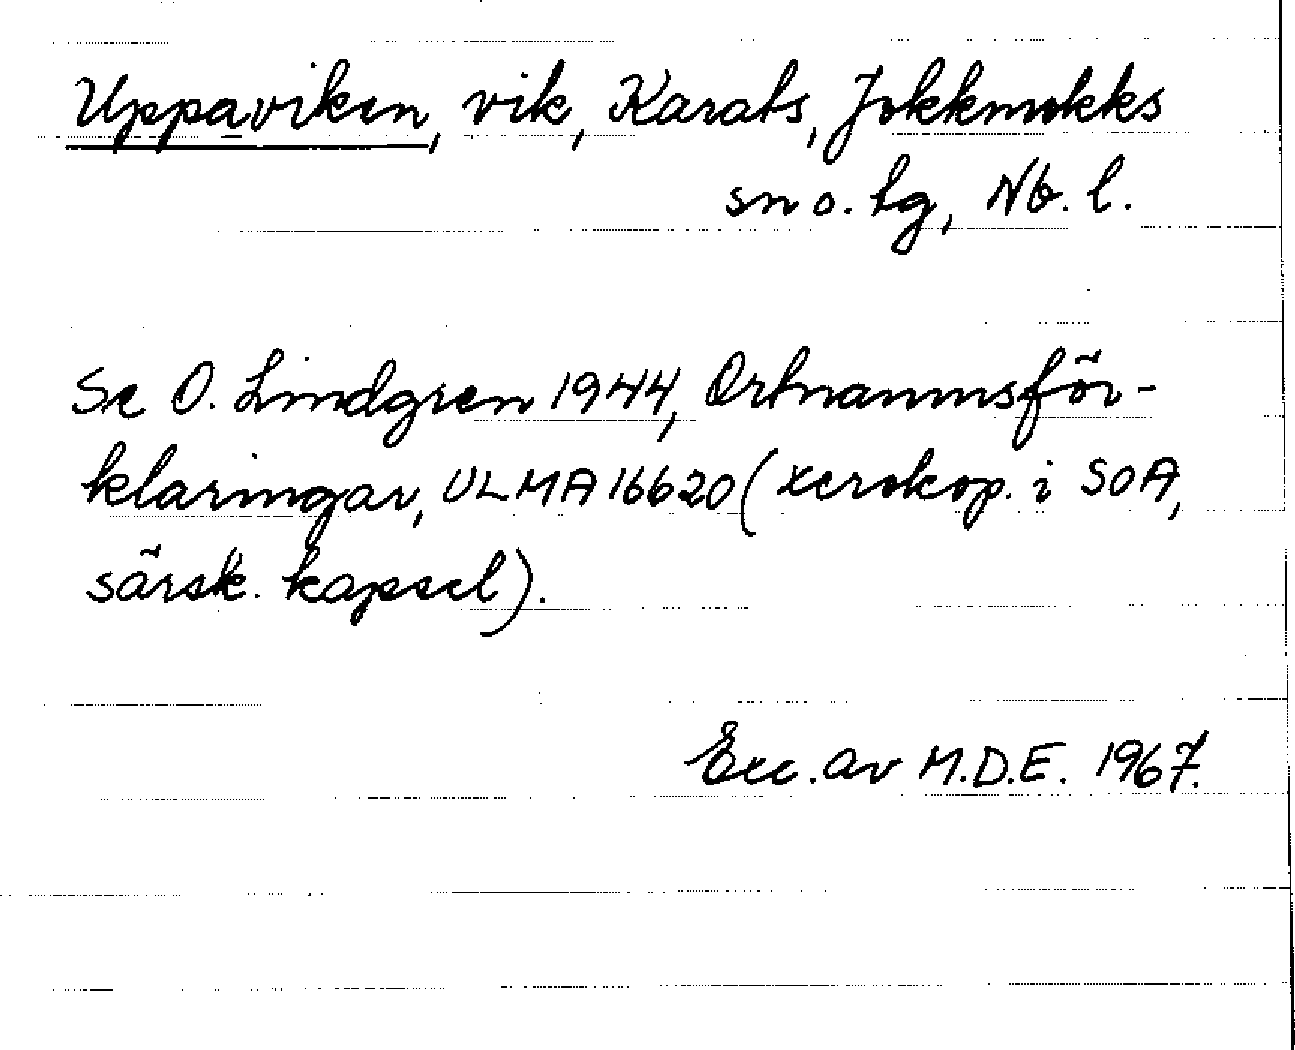 Uppaviken, vik, Karats, Jokkmokks
sn o. tg, Nb. l.
Se O. Lindgren 1944, Ortnamnsför-
klaringar, ULMA 16620 (xerokop. i SOA,
särsk. kapsel).
Exc. av M.D.E. 1967.